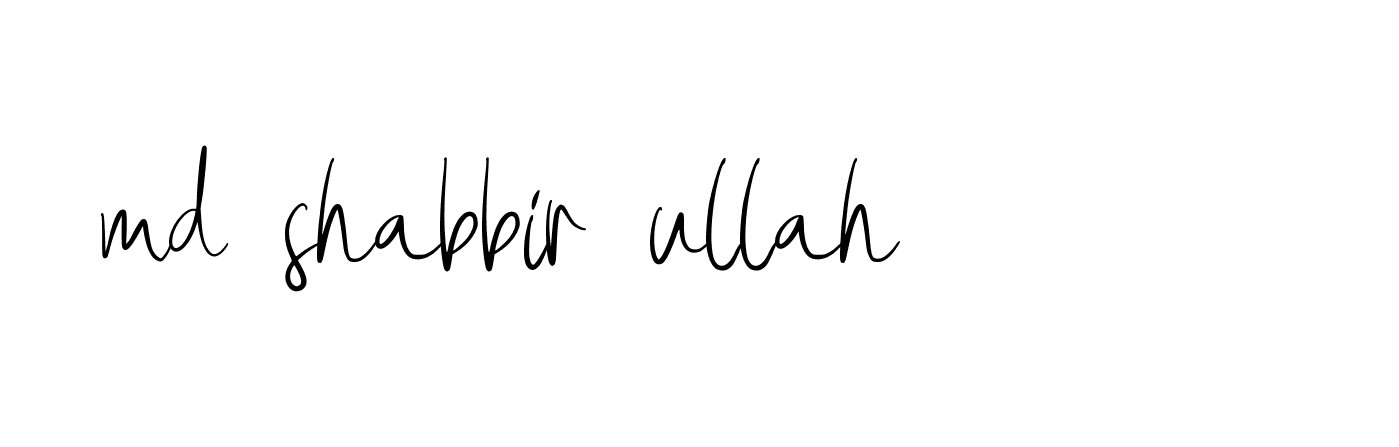 md shabbir ullah